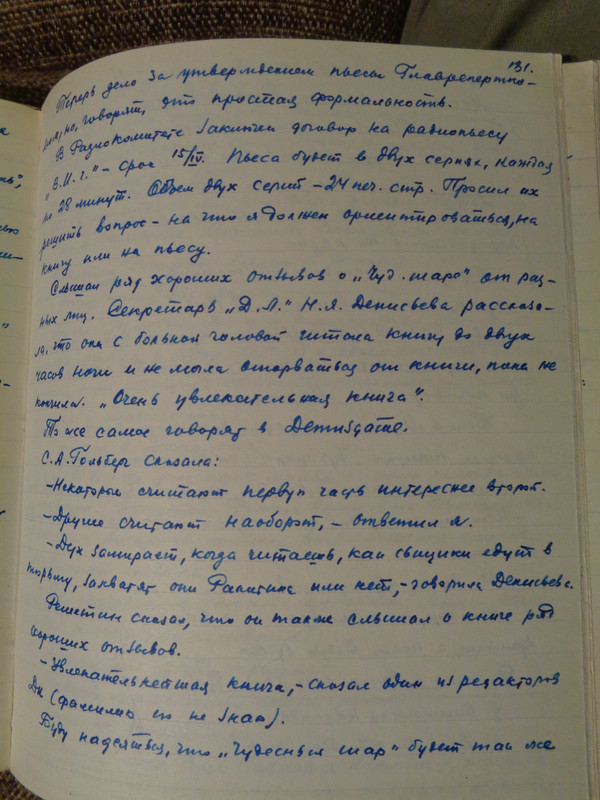 131.
Теперь дело за утверждением пьесы Главрепертко-
мом, но, говорят, это простая формальность.
В Радиокомитете заключен договор на радиопьесу
"В.И.г." – срок 15/IV. Пьеса будет в двух сериях, каждая
по 28 минут. Объем двух серий – 24 печ. стр. Просил их
решить вопрос – на что я должен ориентироваться, на
книгу или на пьесу.
Слышал ряд хороших отзывов о „Чуд. шаре" от раз-
ных лиц. Секретарь „Д.Л." Н.Я. Денисьева рассказа-
ла, что она с больной головой читала книгу до двух
часов ночи и не могла оторваться от книги, пока не
кончила. „Очень увлекательная книга".
То же самое говорят в Детиздате.
С.А. Гольберг сказала:
– Некоторые считают первую часть интереснее второй.
– Другие считают наоборот, – ответил я.
– Дух замирает, когда читаешь, как сыщики едут в
тюрьму, захватят они Ракитина или нет, – говорила Денисьева.
Решетин сказал, что он также слышал о книге ряд
хороших отзывов.
– Увлекательнейшая книга, – сказал один из редакторов
ДИ (фамилию его не знаю).
Буду надеяться, что „Чудесный шар" будет так же